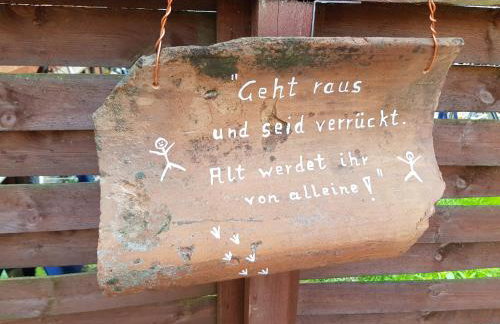 "Geht raus
und seid verrückt.
Alt werdet ihr
von alleine!"